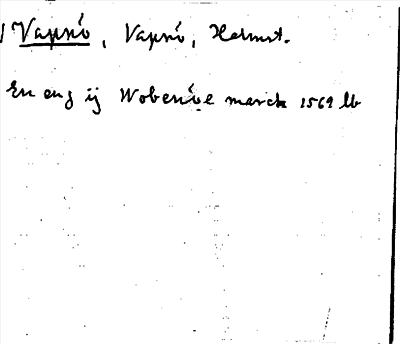 Vapnö, Vapnö, Halmst.
En eng ij Wobenöe marck 1569 lb